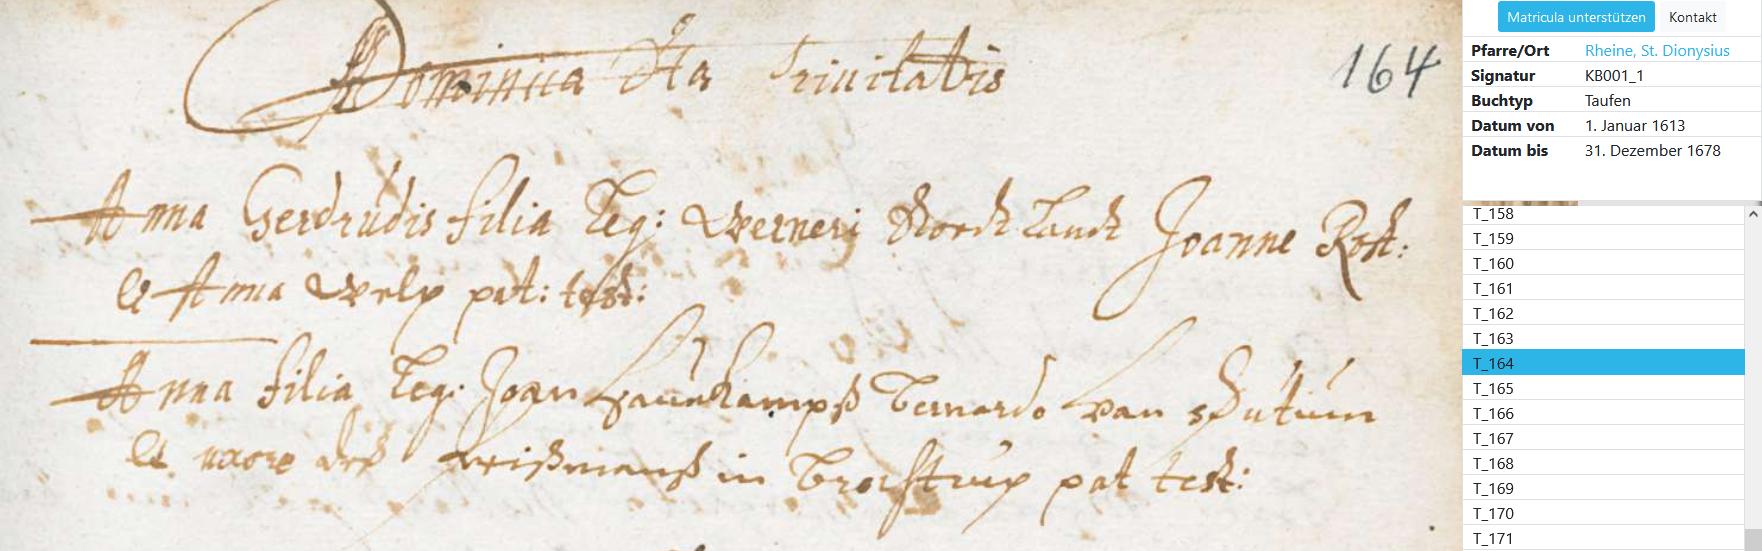 Dominica 4ta Trinitatis
164
Anna Gerdrudis filia leg: Werneri Joanne Rost:
et Anna Welp pat: test:
Anna filia leg: Joan Bernardo van
et uxore in pat test:
Matricula unterstützen Kontakt
Pfarre/Ort Rheine, St. Dionysius
Signatur KB001_1
Buchtyp Taufen
Datum von 1. Januar 1613
Datum bis 31. Dezember 1678
T_158
T_159
T_160
T_161
T_162
T_163
T_164
T_165
T_166
T_167
T_168
T_169
T_170
T_171